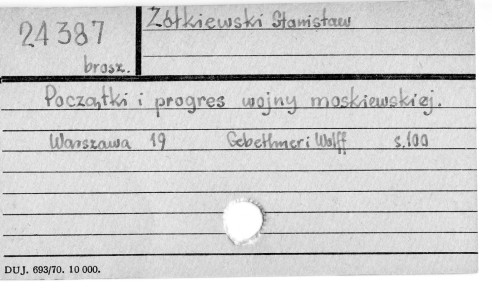 24387
brosz.
Żółkiewski Stanisław
Początki i progres wojny moskiewskiej.
Warszawa 19 Gebethner i Wolff s.100
DUJ. 693/70. 10 000.